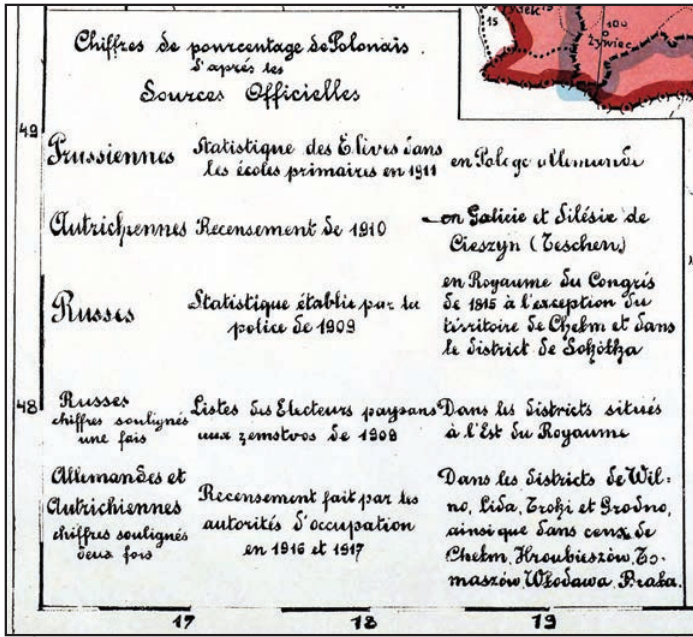 15
Żywiec
100
Chiffres de pourcentage de Polonais
d'après les
Sources Officielles
49
Prussiennes
Statistique des Elèves dans
les écoles primaires en 1911
en Pologne allemande
Autrichiennes
Recensement de 1910
en Galicie et Silésie de
Cieszyn (Teschen)
Russes
Statistique établie par la
police de 1909
en Royaume du Congrès
de 1815 à l'exception du
territoire de Chełm et dans
le district de Sokółka
48
Russes
chiffres soulignés
une fois
Listes des Electeurs paysans
aux zemstvos de 1909
Dans les districts situés
à l'Est du Royaume
Allemandes et
Autrichiennes
chiffres soulignés
deux fois
Recensement fait par les
autorités d'occupation
en 1916 et 1917
Dans les districts de Wil=
no, Lida, Troki et Grodno,
ainsi que dans ceux de
Chełm, Hroubieszów, To-
maszów, Włodawa,
17
18
19